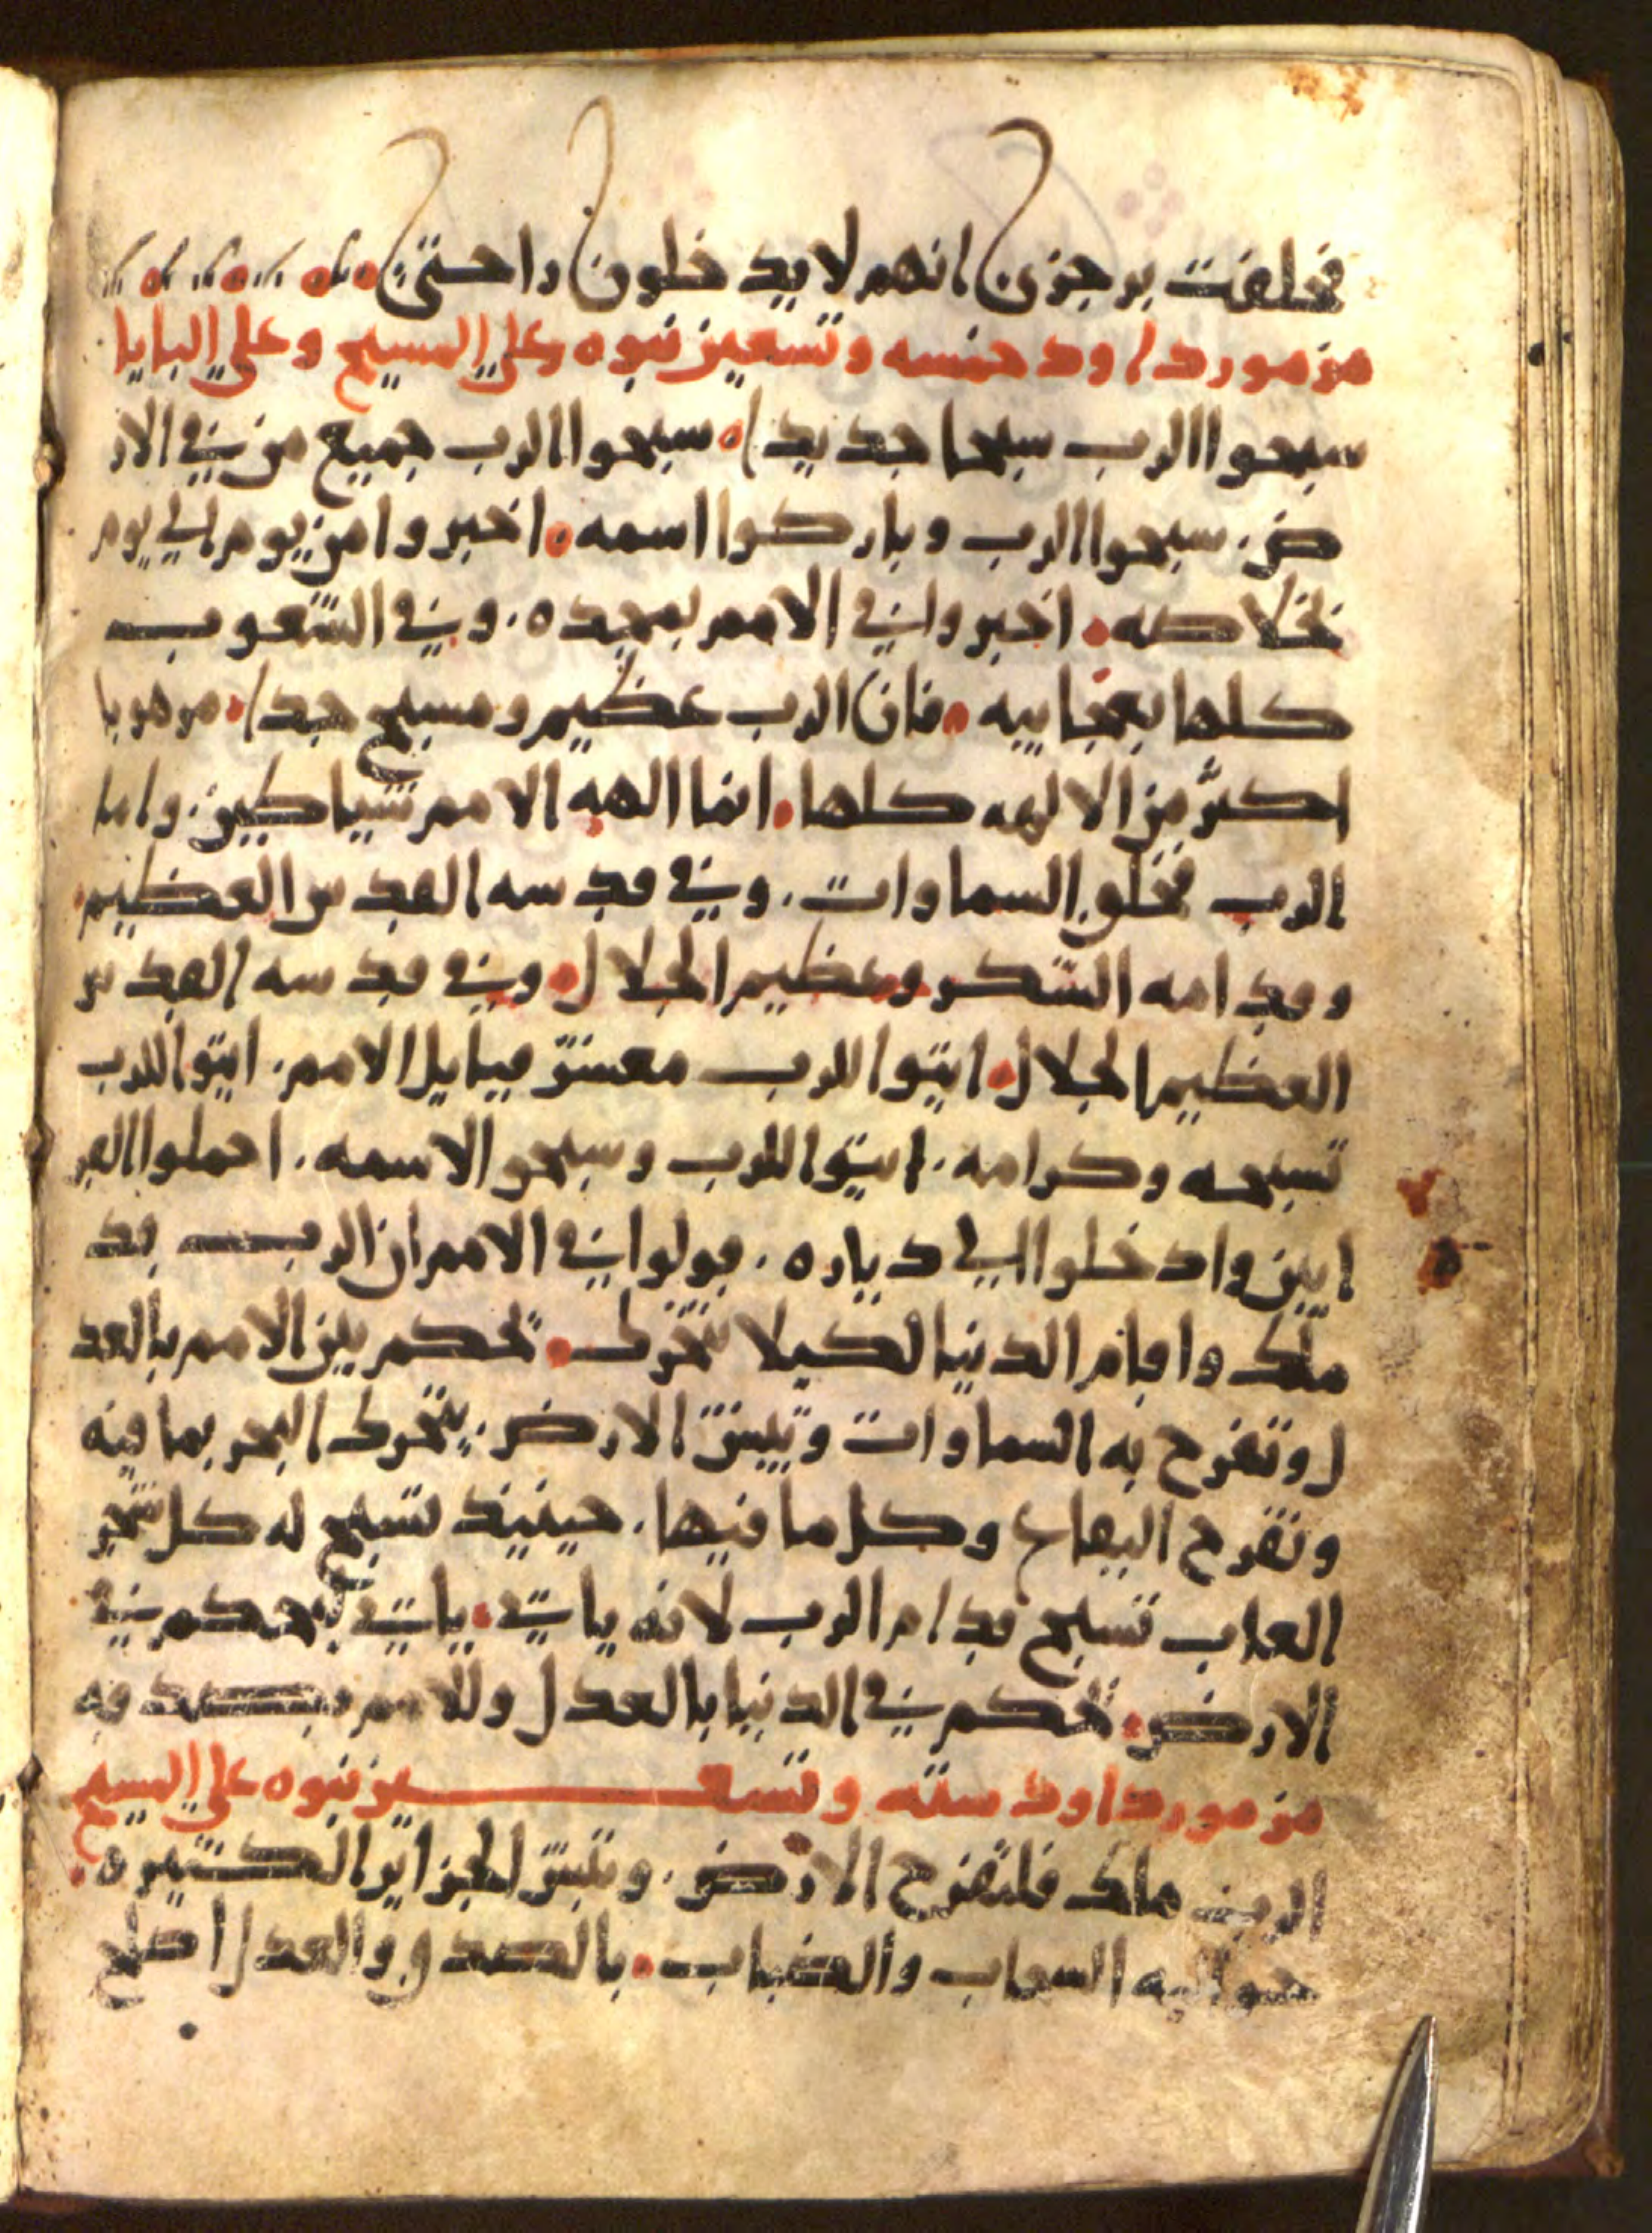 فحلفت برجزي انهم لا يدخلون راحتي
مزمور داود خمسه وتسعين نبوه على المسيح وعلى البايا
سبحوا الرب سبحا جديدا. سبحوا الرب جميع من في الار
ض. سبحوا الرب وباركوا اسمه. اخبروا من يوم الي يوم
بخلاصه. اخبروا في الامم بمجده. وفي الشعوب
كلها بعجاييه. فان الرب عظيم ومسبح جدا. مرهوبا
اكثر من الالهه كلها. انما الهه الامم شياطين. واما
الرب فخلق السماوات. وفي قدسه القدس العظيم.
وقدامه الشكر وعظيم الجلال. وفي قدسه القدس
العظيم الجلال. ايتوا للرب معشر قبايل الامم. ايتوا للرب
تسبحه وكرامه. ايتوا للرب وسبحوا لاسمه. احملوا القر
ابين وادخلوا الي دياره. قولوا في الامم ان الرب قد
ملك واقام الدنيا لكيلا تتحرك. تحكم بين الامم بالعد
ل وتفرح به السماوات وتبتش الارض. يتحرك البحر بما فيه
وتفرح البقاع وكل ما فيها. حينيذ تسبح له كل شجر
الغاب تسبح قدام الرب لانه ياتي. ياتي ليحكم في
الارض. تحكم في الدنيا بالعدل وللامم بصدقه
مزمور داود سته وتسعين نبوه على المسيح
الرب ملك فلتفرح الارض. وتبتش الجزاير الكثيره.
حواليه السحاب والضباب. بالصدق والعدل اصلح